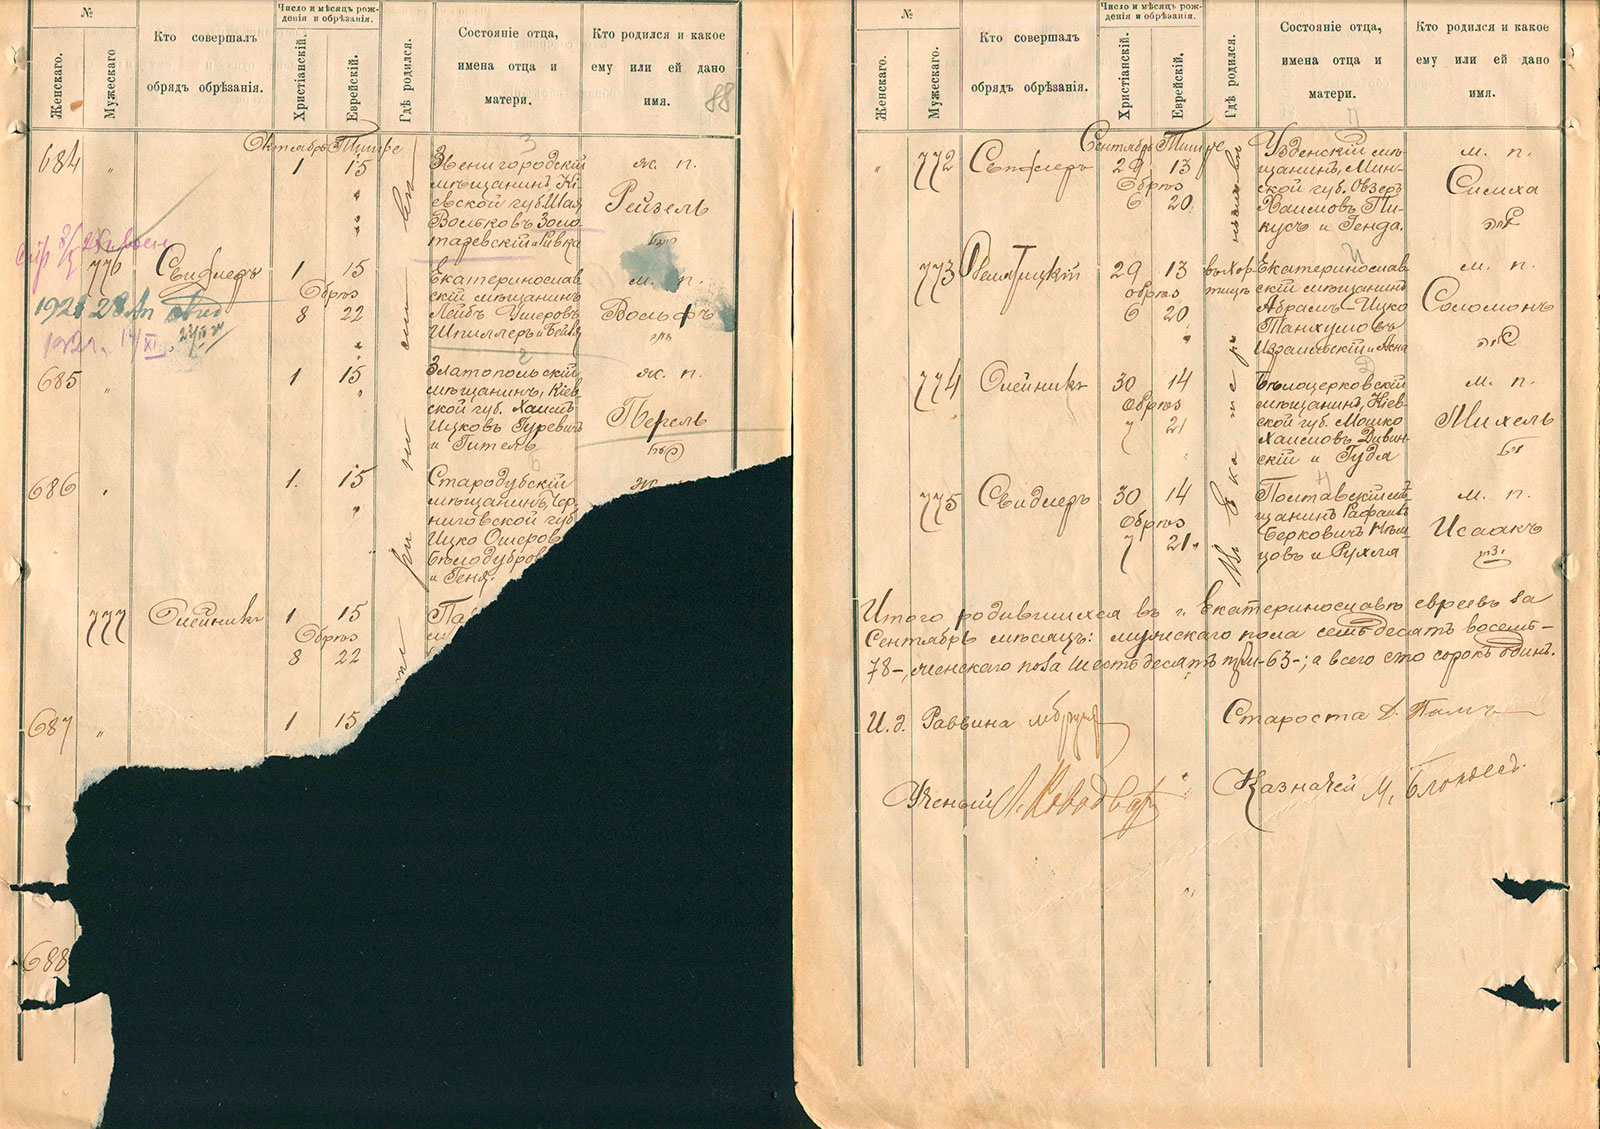 №
Женскаго.
Мужескаго
Кто совершалъ
обрядъ обрѣзанія.
Число и мѣсяцъ рож-
денія и обрѣзанія.
Христіанскій.
Еврейскій.
Гдѣ родился.
Состояніе отца,
имена отца и
матери.
Кто родился и какое
ему или ей дано
имя.
88
Октябрь Тишре
684 " 1 15
Звенигородскій
мѣщанинъ, Кі-
евской губ. Шая
Волковъ Золо-
таревскій и Ривка
ж. п.
Рейзель
776 Свидлеръ 1 15
Обрѣз
8 22
Екатеринослав
скій мѣщанинъ
Лейбъ Ушеровъ
Шпиллеръ и Бейля
м. п.
Вольфъ
685 " 1 15
Златопольскій
мѣщанинъ, Кіев
ской губ. Хаимъ
Ицковъ Гуревичъ
и Гитель
ж. п.
Перель
686 1. 15
Стародубскій
мѣщанинъ, Чер
ниговской губ
Ицко Ошеров
Бѣлодубров
и Геня.
777 Олейникъ 1 15
Обрѣз
8 22
687 " 1 15
688
№
Женскаго.
Мужескаго.
Кто совершалъ
обрядъ обрѣзанія.
Число и мѣсяцъ рож-
денія и обрѣзанія.
Христіанскій.
Еврейскій.
Гдѣ родился.
Состояніе отца,
имена отца и
матери.
Кто родился и какое
ему или ей дано
имя.
Сентябрь Тишре
" 772 Свидлеръ 29 13
Обрѣз
6 20
Узденскій мѣ
щанинъ, Мин-
ской губ. Овзеръ
Хаимовъ Пи-
кусъ и Генда.
м. п.
Симха
773 29 13
обрѣз
6 20
Екатеринослав
скій мѣщанинъ
Абрамъ-Ицко
Танхумовъ
Израильскій и Асна
м. п.
Соломонъ
774 Олейникъ 30 14
Обрѣз
7 21
Бѣлоцерковскій
мѣщанинъ, Кіев-
ской губ. Мошко
Хаимовъ Дивин-
скій и Гудя
м. п.
Михель
775 Свидлеръ 30 14
Обрѣз
7 21
Полтавскій мѣ-
щанинъ Рафаилъ
Берковичъ
и Рухля
м. п.
Исаакъ
Итого родившихся въ г. Екатеринославѣ евреевъ за
Сентябрь мѣсяцъ: мужскаго пола семьдесятъ восемь-
78-, женскаго пола шестьдесятъ три-63-; а всего сто сорокъ одинъ.
И. д. Раввина
Староста
Ученый
Казначей